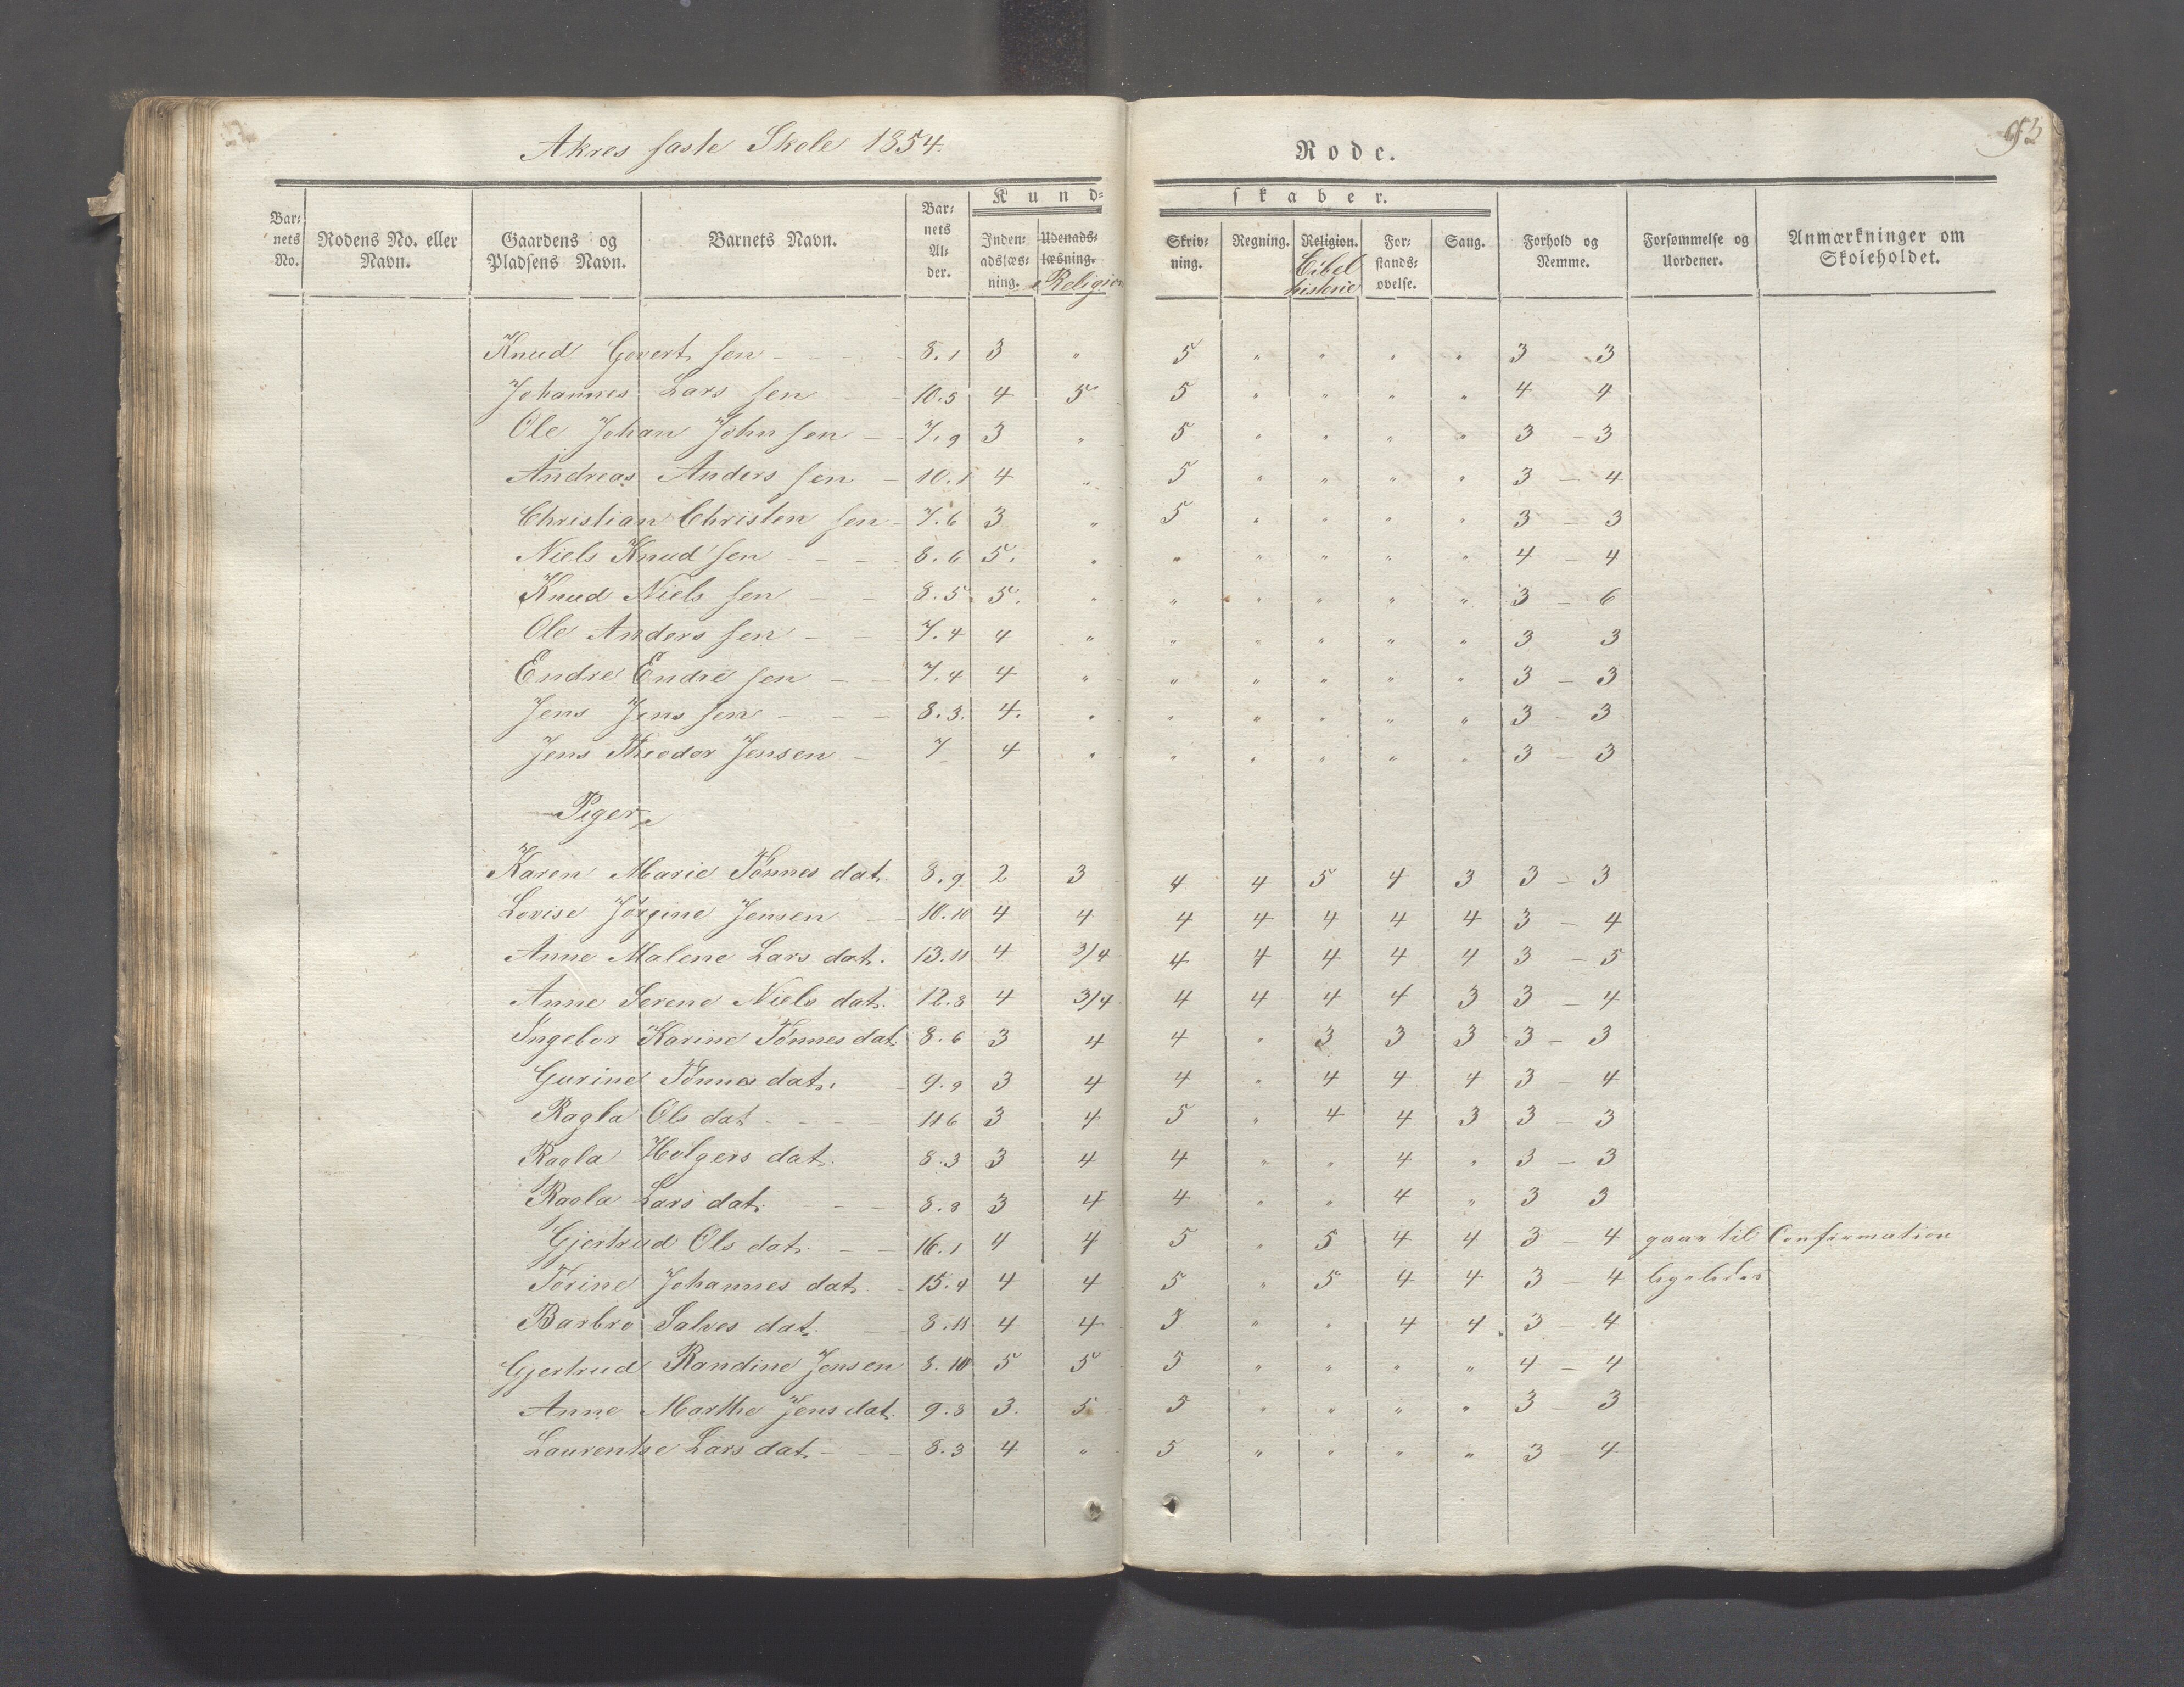 Akres faste Skole 1854.
Rode.
Kund-
skaber.
Bar-
nets
No.
Rodens No. eller
Navn.
Gaardens og
Pladsens Navn.
Barnets Navn.
Bar-
nets
Al-
der.
Inden-
adslæs-
ning.
Udenads-
læsning.
Religion
Skriv-
ning.
Regning.
Religion.
Bibel
historie
For-
stands-
øvelse.
Sang.
Forhold og
Nemme.
Forsømmelse og
Uordener.
Anmærkninger om
Skoleholdet.
Knud Govert sen - - - 8.1 3 " 5 " " " " 3 - 3
Johannes Lars sen - - 10.5 4 5 5 " " " " 4 4
Ole Johan John sen - - 7.9 3 " 5 " " " " 3 - 3
Andreas Anders sen - 10.1 4 " 5 " " " " 3 - 4
Christian Christen sen - 7.6 3 " 5 " " " " 3 - 3
Niels Knud sen - - - 8.6 5. " " " " " " 4 - 4
Knud Niels sen - - 8.5. 5. " " " " " " 3 - 6
Ole Anders sen - - 7.4 4 " " " " " " 3 3
Endre Endre sen - - 7.4 4 " " " " " " 3 - 3
Jens Jens sen - - - 8.3. 4. " " " " " " 3 - 3
Jens Theodor Jensen - 7 4 " " " " " " 3 - 3
Piger
Karen Marie Tønnes dat. 8.9 2 3 4 4 5 4 3 3 - 3
Lovise Jørgine Jensen - - 10.10 4 4 4 4 4 4 4 3 - 4
Anne Malene Lars dat. 13.11 4 3/4 4 4 4 4 4 3 - 5
Anne Serene Niels dat. 12.8 4 3/4 4 4 4 4 3 3 - 4
Ingebor Karine Tønnes dat 8.6 3 4 4 " 3 3 3 3 - 3
Gurine Tønnes dat. - 9.9 3 4 4 " 4 4 4 3 - 4
Ragla Ols dat - - - 11 6 3 4 5 " 4 4 3 3 - 3
Ragla Holgers dat. 8.3 3 4 4 " " 4 " 3 - 3
Ragla Lars dat. - - - 8.8 3 4 4 " " 4 " 3 3
Gjertrud Ols dat. - - 16.1 4 4 5 " 5 4 4 3 - 4 gaar til Confirmation
Torine Johannes dat. - 15.4 4 4 5 " 5 4 4 3 - 4 ligeledes
Barbro Salves dat. - - 8.11 4 4 5 " " 4 4. 3 - 4
Gjertrud Randine Jensen 8.10 5 5 5 " " " " 4 - 4
Anne Marthe Jens dat. 9.8 3. 5 5 " " " " 3 - 3
Laurentse Lars dat - - - 8.3 4 " 5 " " " " 3 - 4